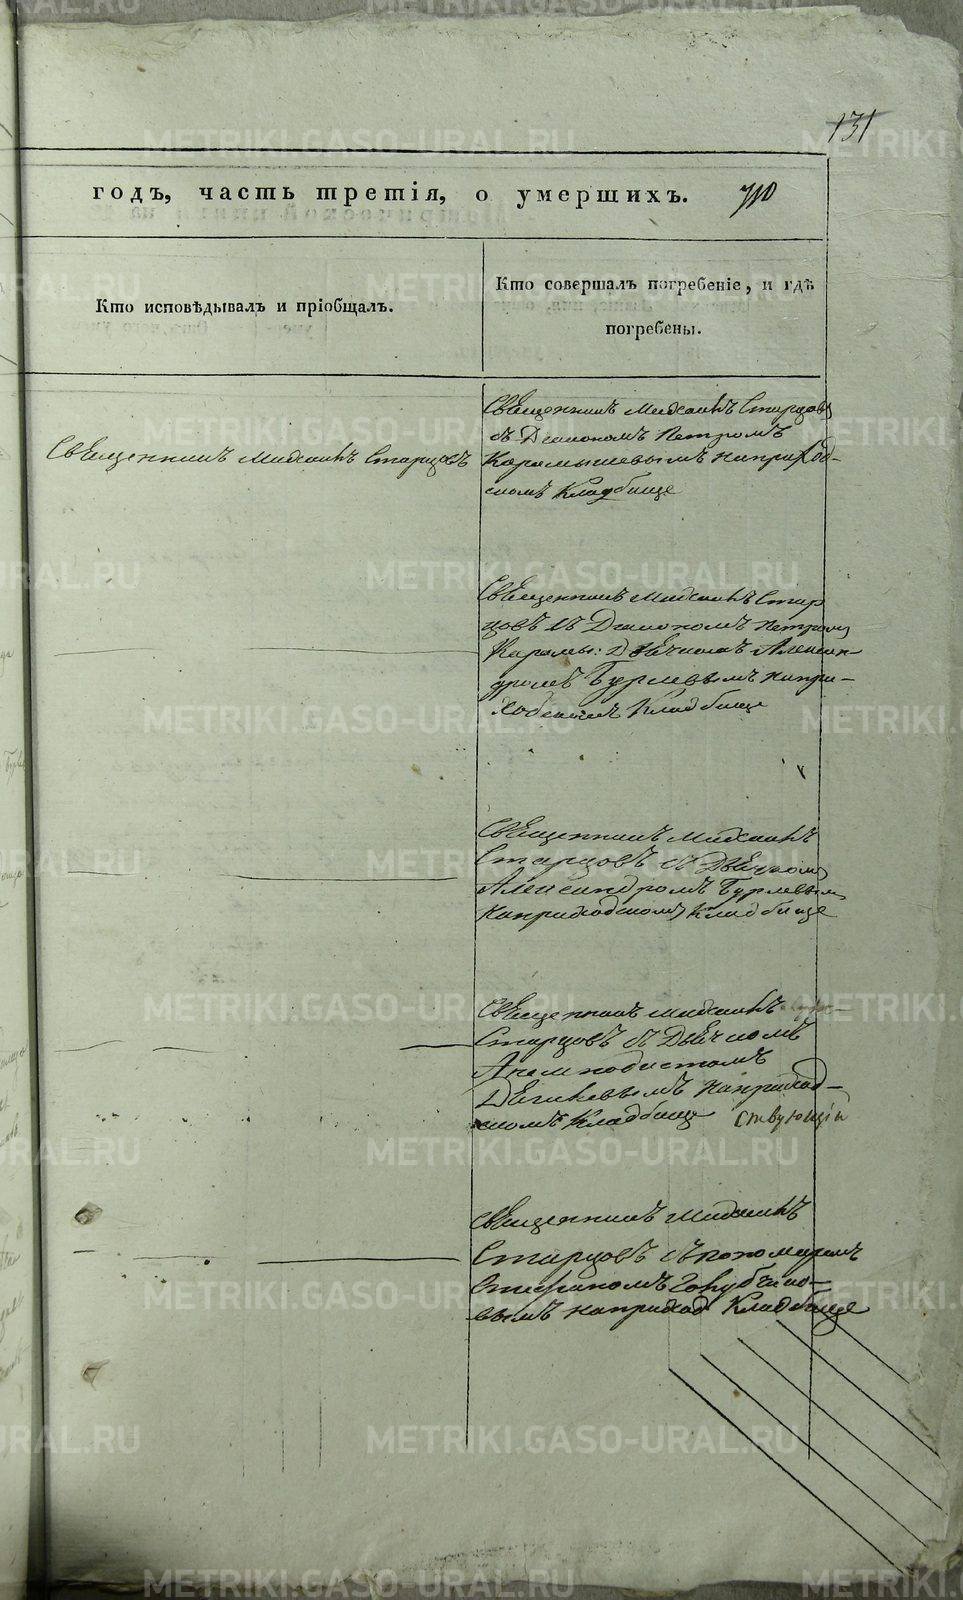 131
годъ, часть третія, о умершихъ. 710
Кто исповѣдывалъ и пріобщалъ.
Кто совершалъ погребеніе, и гдѣ
погребены.
Священникъ Михаилъ Старцовъ
Священникъ Михаилъ Старцовъ
съ Діакономъ Петромъ
Карамышевымъ на приход-
скомъ Кладбище
Священникъ Михаилъ Стар
цовъ съ Діакономъ Петромъ
Карамы: Дьячкомъ Алексан-
дромъ Бурлевымъ на при-
ходскомъ Кладбище
Священникъ Михаилъ
Старцовъ съ Дьячкомъ
Александромъ Бурлевымъ
на приходскомъ Кладбище
Священникъ Михаилъ
Старцовъ съ Дьячкомъ
на приход-
скомъ Кладбище ствующій
Священникъ Михаилъ
Старцовъ съ пономаремъ
Стефаномъ
вымъ на приход Кладбище
METRIKI.GASO-URAL.RU